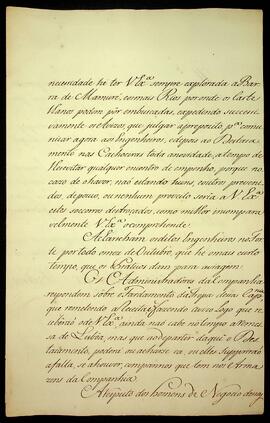 necessidade ha ter V Ex.ª sempre explorada a Bar-
ra de Mamuré, e os mais Rios por onde os Caste-
lhanos podem pôr embuscadas, expedindo successi-
vamente os avizos, que julgar a proposito p.ª comu-
nicar agora aos Engenheiros, e depois ao Destaca-
mento nas Cachoeiras toda a novidade, a tempo de
se evitar qualquer encontro de empenho, porque no
cazo de o haver, naõ estando huns, e outros preveni-
dos, de pouco, ou nenhum proveito seria a V Ex.ª
estes socorros destroçados, como milhor incompara-
velmente V Ex.ª o comprehende.
ordels Engenheiros no For-
te por todo o mez de Outubro, que he o mais curto
tempo, que os Praticos dem para a viagem.
Os Administradores da Companhia
respondem sobre o Fardamento da Tropa dessa Cap.nia
que remetendo a Receita, e fazendo aviso logo que re-
cebiraõ o de V Ex.ª, ainda naõ cabe no tempo a Remes-
sa de Lisboa, mas que ao partir daqui o Des-
tacamento, poderá ou achar-se cá, ou elles suppriraõ
a falta, se a houver, com panos que tem nos Arma-
zens da Companhia.
A respeito dos homens de Negocio dessa